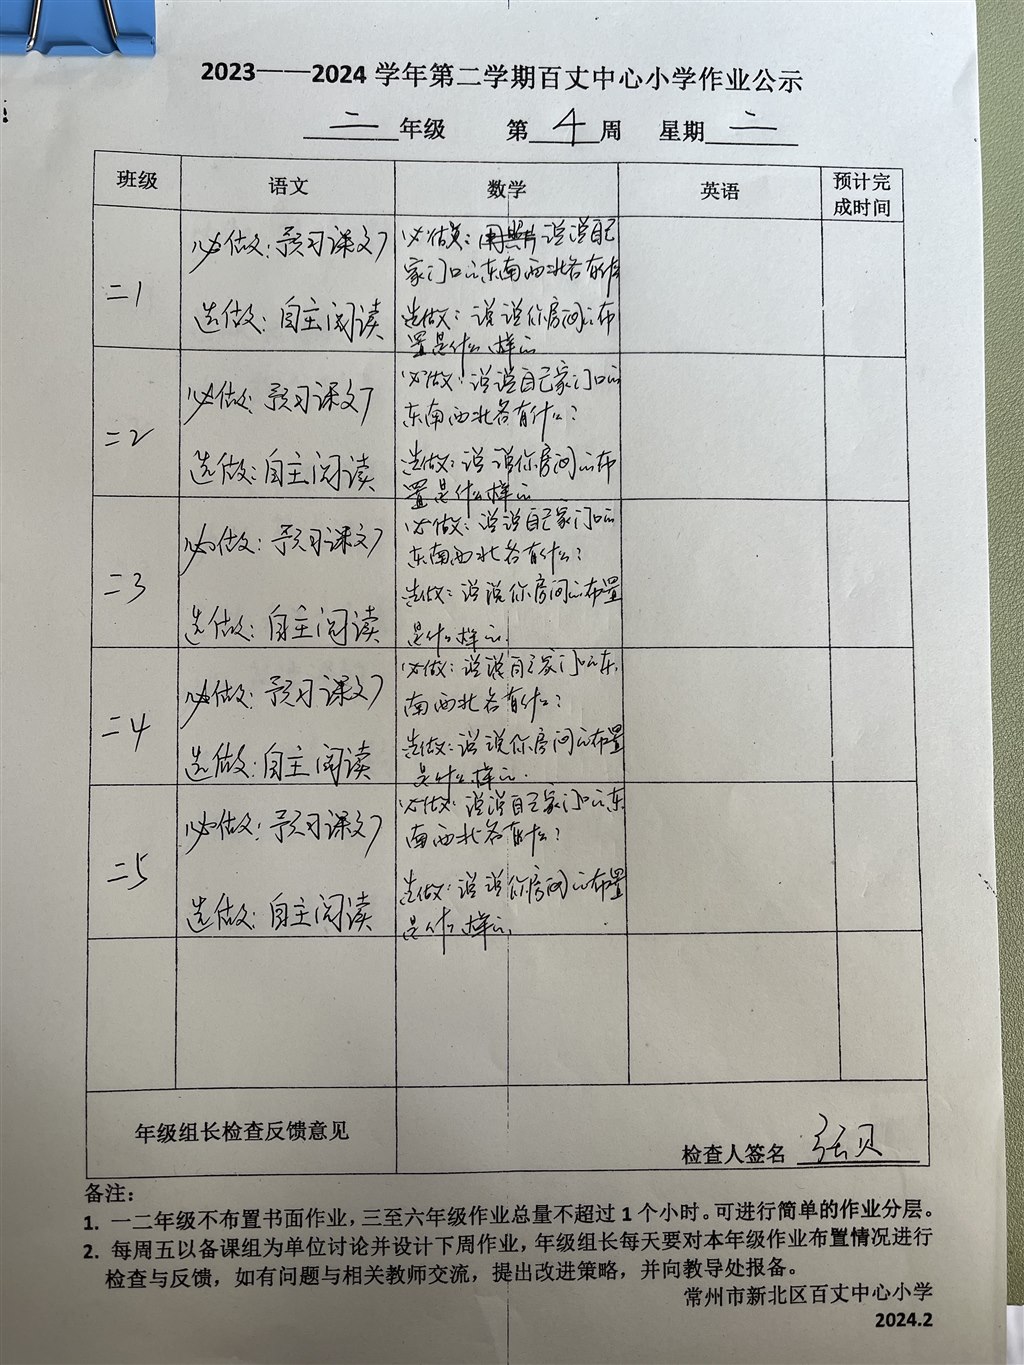 2023——2024 学年第二学期百丈中心小学作业公示
二年级 第 4 周 星期 二
班级 语文 数学 英语 预计完成时间
二1
必做：预习课文7
选做：自主阅读
必做：说说自己
家门口的东南西北各有什
选做：说说你房间的布
置是什么样的
二2
必做：预习课文7
选做：自主阅读
必做：说说自己家门口的
东南西北各有什么？
选做：说说你房间的布
置是什么样的
二3
必做：预习课文7
选做：自主阅读
必做：说说自己家门口的
东南西北各有什么？
选做：说说你房间的布置
是什么样的.
二4
必做：预习课文7
选做：自主阅读
必做：说说自己家门口的东
南西北各有什么？
选做：说说你房间的布置
是什么样的.
二5
必做：预习课文7
选做：自主阅读
必做：说说自己家门口的东
南西北各有什么？
选做：说说你房间的布置
是什么样的.
年级组长检查反馈意见
检查人签名 张贝
备注：
1. 一二年级不布置书面作业，三至六年级作业总量不超过 1 个小时。可进行简单的作业分层。
2. 每周五以备课组为单位讨论并设计下周作业，年级组长每天要对本年级作业布置情况进行
检查与反馈，如有问题与相关教师交流，提出改进策略，并向教导处报备。
常州市新北区百丈中心小学
2024.2